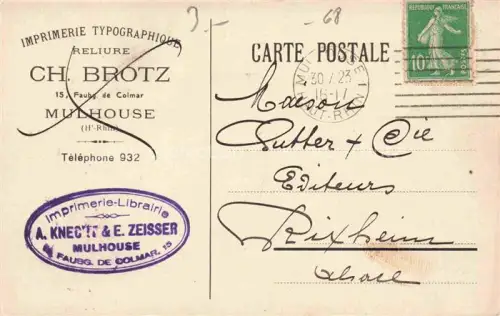 3.-
-68
IMPRIMERIE TYPOGRAPHIQUE
RELIURE
CH. BROTZ
15, Faubg de Colmar
MULHOUSE
(Ht-Rhin)
Téléphone 932
Imprimerie-Librairie
A. KNECHT & E. ZEISSER
MULHOUSE
FAUBG. DE COLMAR, 15
CARTE POSTALE
RÉPUBLIQUE FRANÇAISE
10
POSTES
30 / 23
16-17
HAUT-RHIN
Maison
Sutter & Cie
Editeurs
Rixheim
Alsace